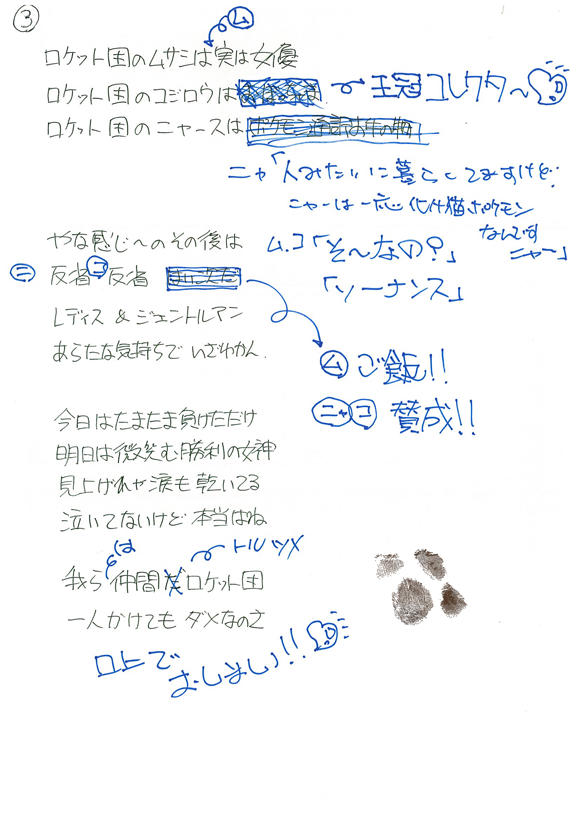 ③
ム
ロケット団のムサシは実は女優
ロケット団のコジロウは 王冠コレクター
ロケット団のニャースは
ニャ「人みたいに暮らしてますけど…
ニャーは一応化け猫ポケモン
なんです
ニャー」
やな感じへのその後は
ム.コ「そ〜なの?」
ニ 反省 コ 反省
「ソーナンス」
Lディス & ジェントルアン
あらたな気持ちで いざゆかん.
ム ご飯!!
ニャ コ 賛成!!
今日はたまたま負けただけ
明日は微笑む勝利の女神
見上げれば涙も乾いてる
泣いてないけど 本当はね
は トルツメ
我ら仲間だロケット団
一人かけても ダメなのさ
口上で
おしまい!!